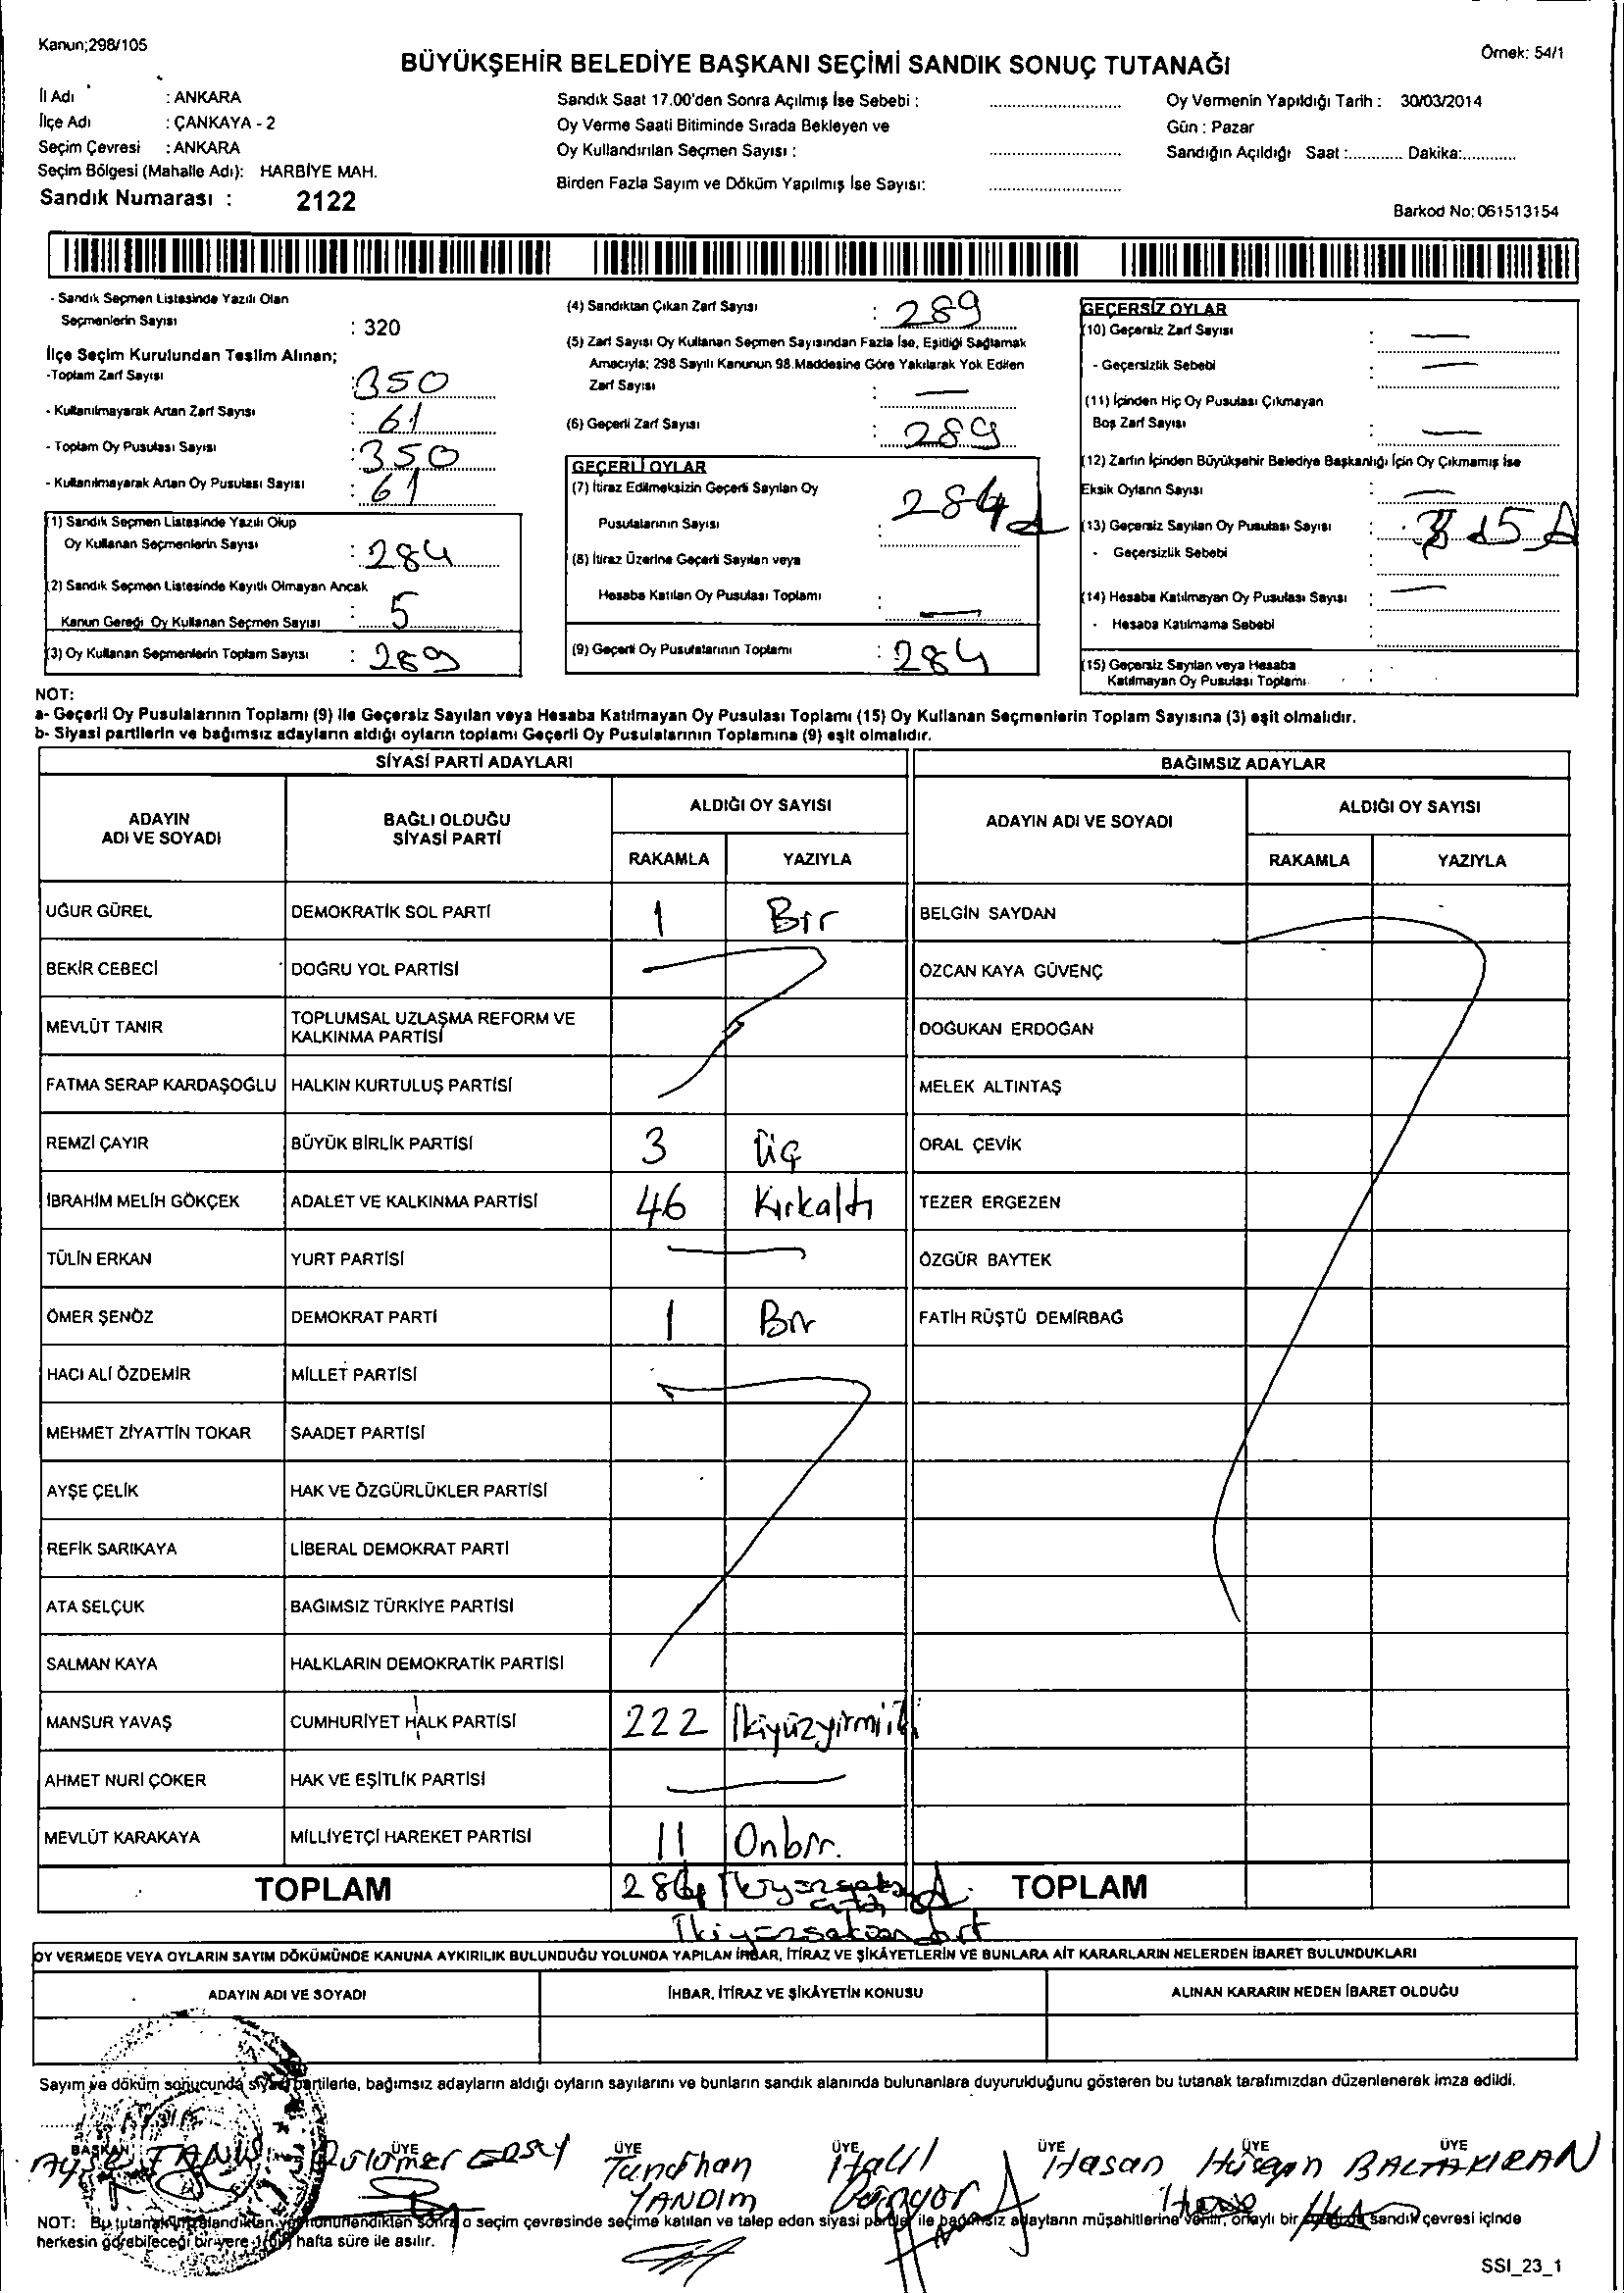 Kanun;298/105
Örnek: 54/1
BÜYÜKŞEHİR BELEDİYE BAŞKANI SEÇİMİ SANDIK SONUÇ TUTANAĞI
İl Adı : ANKARA
İlçe Adı : ÇANKAYA - 2
Seçim Çevresi : ANKARA
Seçim Bölgesi (Mahalle Adı): HARBİYE MAH.
Sandık Numarası : 2122
Sandık Saat 17.00'den Sonra Açılmış İse Sebebi :
Oy Verme Saati Bitiminde Sırada Bekleyen ve
Oy Kullandırılan Seçmen Sayısı :
Birden Fazla Sayım ve Döküm Yapılmış İse Sayısı:
Oy Vermenin Yapıldığı Tarih : 30/03/2014
Gün : Pazar
Sandığın Açıldığı Saat :............ Dakika:............
Barkod No:061513154
- Sandık Seçmen Listesinde Yazılı Olan
Seçmenlerin Sayısı : 320
İlçe Seçim Kurulundan Teslim Alınan;
-Toplam Zarf Sayısı : 350
- Kullanılmayarak Artan Zarf Sayısı : 61
- Toplam Oy Pusulası Sayısı : 350
- Kullanılmayarak Artan Oy Pusulası Sayısı : 61
(1) Sandık Seçmen Listesinde Yazılı Olup
Oy Kullanan Seçmenlerin Sayısı : 284
(2) Sandık Seçmen Listesinde Kayıtlı Olmayan Ancak
Kanun Gereği Oy Kullanan Seçmen Sayısı : 5
(3) Oy Kullanan Seçmenlerin Toplam Sayısı : 289
(4) Sandıktan Çıkan Zarf Sayısı : 289
(5) Zarf Sayısı Oy Kullanan Seçmen Sayısından Fazla İse, Eşitliği Sağlamak
Amacıyla; 298 Sayılı Kanunun 98.Maddesine Göre Yakılarak Yok Edilen
Zarf Sayısı : —
(6) Geçerli Zarf Sayısı : 289
GEÇERLİ OYLAR
(7) İtiraz Edilmeksizin Geçerli Sayılan Oy
Pusulalarının Sayısı : 284
(8) İtiraz Üzerine Geçerli Sayılan veya
Hesaba Katılan Oy Pusulası Toplamı : —
(9) Geçerli Oy Pusulalarının Toplamı : 284
GEÇERSİZ OYLAR
(10) Geçersiz Zarf Sayısı : —
- Geçersizlik Sebebi : —
(11) İçinden Hiç Oy Pusulası Çıkmayan
Boş Zarf Sayısı : —
(12) Zarfın İçinden Büyükşehir Belediye Başkanlığı İçin Oy Çıkmamış İse
Eksik Oyların Sayısı : —
(13) Geçersiz Sayılan Oy Pusulası Sayısı : 5
- Geçersizlik Sebebi :
(14) Hesaba Katılmayan Oy Pusulası Sayısı : —
- Hesaba Katılmama Sebebi :
(15) Geçersiz Sayılan veya Hesaba
Katılmayan Oy Pusulası Toplamı :
NOT:
a- Geçerli Oy Pusulalarının Toplamı (9) ile Geçersiz Sayılan veya Hesaba Katılmayan Oy Pusulası Toplamı (15) Oy Kullanan Seçmenlerin Toplam Sayısına (3) eşit olmalıdır.
b- Siyasi partilerin ve bağımsız adayların aldığı oyların toplamı Geçerli Oy Pusulalarının Toplamına (9) eşit olmalıdır.
SİYASİ PARTİ ADAYLARI
BAĞIMSIZ ADAYLAR
ADAYIN ADI VE SOYADI
BAĞLI OLDUĞU SİYASİ PARTİ
ALDIĞI OY SAYISI
RAKAMLA YAZIYLA
ADAYIN ADI VE SOYADI
ALDIĞI OY SAYISI
RAKAMLA YAZIYLA
UĞUR GÜREL DEMOKRATİK SOL PARTİ 1 Bir BELGİN SAYDAN
BEKİR CEBECİ DOĞRU YOL PARTİSİ ÖZCAN KAYA GÜVENÇ
MEVLÜT TANIR TOPLUMSAL UZLAŞMA REFORM VE KALKINMA PARTİSİ DOĞUKAN ERDOĞAN
FATMA SERAP KARDAŞOĞLU HALKIN KURTULUŞ PARTİSİ MELEK ALTINTAŞ
REMZİ ÇAYIR BÜYÜK BİRLİK PARTİSİ 3 Üç ORAL ÇEVİK
İBRAHİM MELİH GÖKÇEK ADALET VE KALKINMA PARTİSİ 46 Kırkaltı TEZER ERGEZEN
TÜLİN ERKAN YURT PARTİSİ — ÖZGÜR BAYTEK
ÖMER ŞENÖZ DEMOKRAT PARTİ 1 Bir FATİH RÜŞTÜ DEMİRBAĞ
HACI ALİ ÖZDEMİR MİLLET PARTİSİ
MEHMET ZİYATTİN TOKAR SAADET PARTİSİ
AYŞE ÇELİK HAK VE ÖZGÜRLÜKLER PARTİSİ
REFİK SARIKAYA LİBERAL DEMOKRAT PARTİ
ATA SELÇUK BAĞIMSIZ TÜRKİYE PARTİSİ
SALMAN KAYA HALKLARIN DEMOKRATİK PARTİSİ
MANSUR YAVAŞ CUMHURİYET HALK PARTİSİ 222 İkiyüzyirmiiki
AHMET NURİ ÇOKER HAK VE EŞİTLİK PARTİSİ —
MEVLÜT KARAKAYA MİLLİYETÇİ HAREKET PARTİSİ 11 Onbir.
TOPLAM 284 TOPLAM
İkiyüzseksendört
OY VERMEDE VEYA OYLARIN SAYIM DÖKÜMÜNDE KANUNA AYKIRILIK BULUNDUĞU YOLUNDA YAPILAN İHBAR, İTİRAZ VE ŞİKÂYETLERİN VE BUNLARA AİT KARARLARIN NELERDEN İBARET BULUNDUKLARI
ADAYIN ADI VE SOYADI İHBAR, İTİRAZ VE ŞİKÂYETİN KONUSU ALINAN KARARIN NEDEN İBARET OLDUĞU
Sayım ve döküm sonucunda siyasi partilerle, bağımsız adayların aldığı oyların sayılarını ve bunların sandık alanında bulunanlara duyurulduğunu gösteren bu tutanak tarafımızdan düzenlenerek imza edildi.
BAŞKAN ÜYE ÜYE ÜYE ÜYE ÜYE ÜYE
Tandhan Halil Hasan Hüseyin BALTAKIRAN
YANDIM Güngör
NOT: Bu tutanak o seçim çevresinde seçime katılan ve talep eden siyasi partiler ile bağımsız adayların müşahitlerine verilir, onaylı bir sandık çevresi içinde
herkesin görebileceği bir yere hafta süre ile asılır.
SSI_23_1